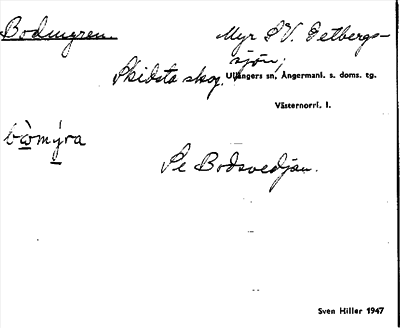 Bodmyren. Myr S V. Getbergs-
sjön;
Skidsta skog. Ullångers sn, Ångermanl. s. doms. tg.
Västernorrl. l.
bo̱mý̱ra
Se Bodsvedjan.
Sven Hiller 1947